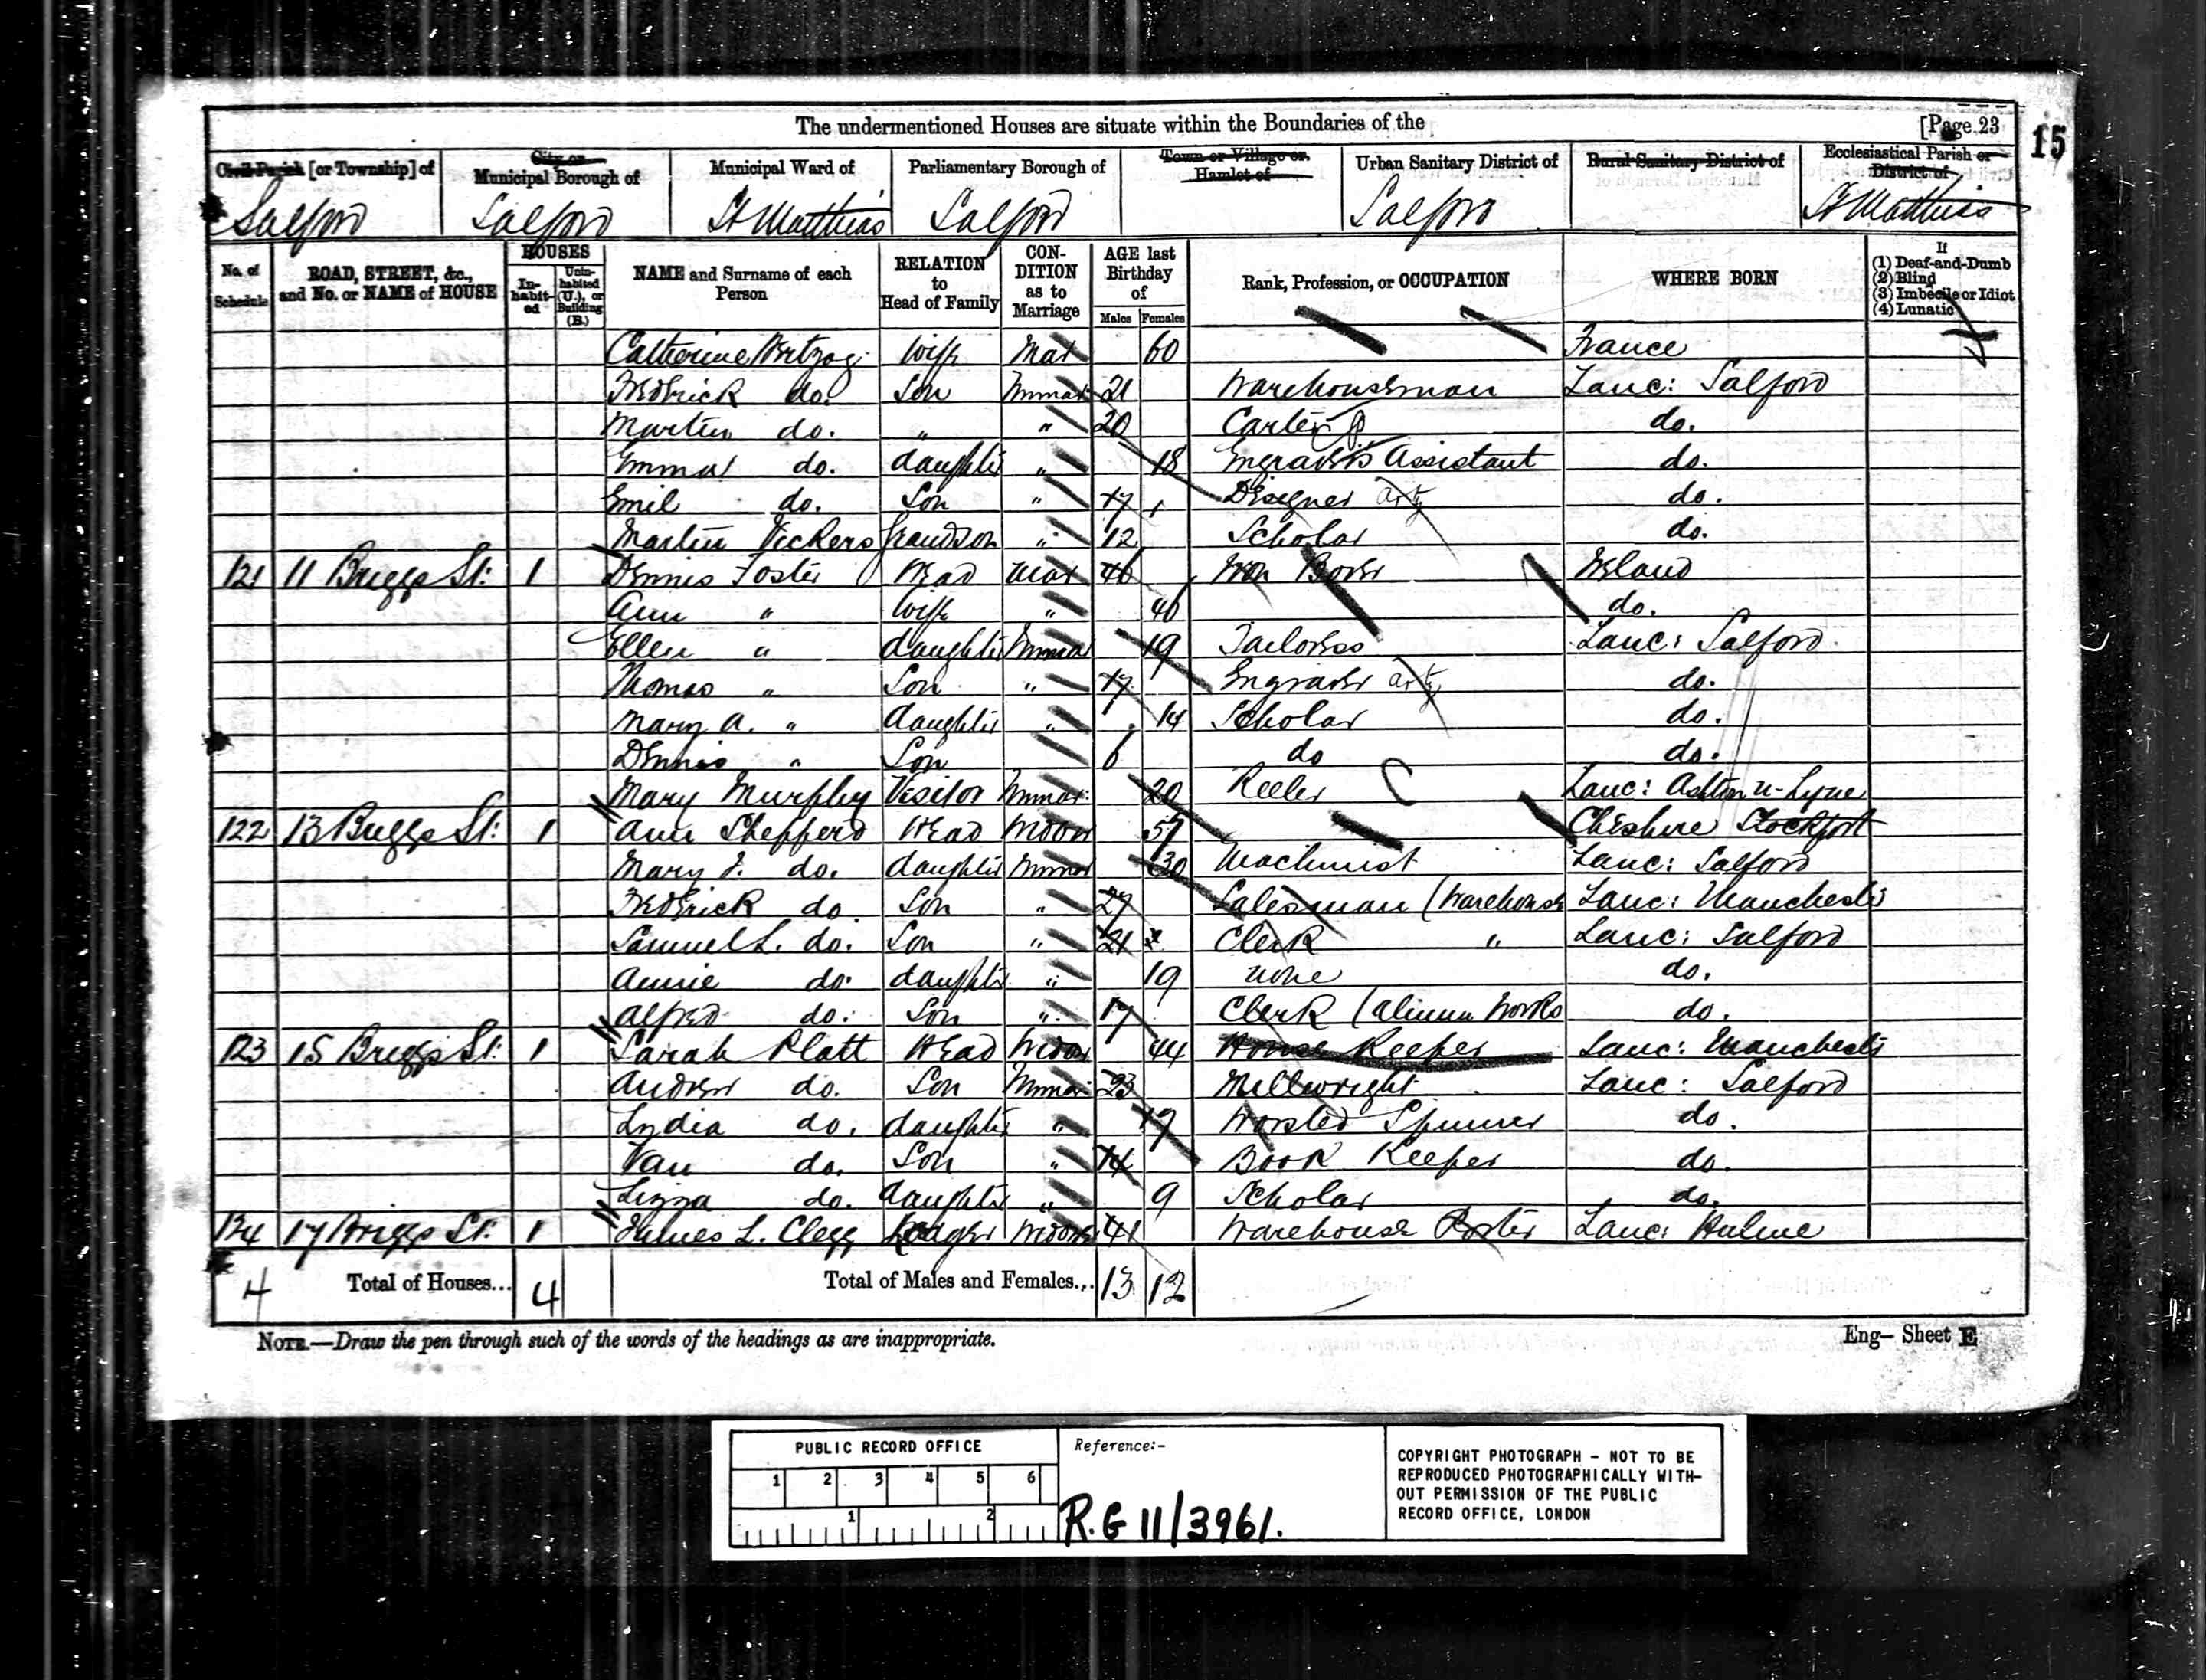 The undermentioned Houses are situate within the Boundaries of the
[Page 23
15
Civil Parish [or Township] of
City or Municipal Borough of
Municipal Ward of
Parliamentary Borough of
Town or Village or Hamlet of
Urban Sanitary District of
Rural Sanitary District of
Ecclesiastical Parish or District of
Salford Salford St Matthias Salford Salford St Matthias
No. of Schedule
ROAD, STREET, &c., and No. or NAME of HOUSE
HOUSES
In-habit-ed
Unin-habited (U.), or Building (B.)
NAME and Surname of each Person
RELATION to Head of Family
CON-DITION as to Marriage
AGE last Birthday of
Males Females
Rank, Profession, or OCCUPATION
WHERE BORN
If
(1) Deaf-and-Dumb
(2) Blind
(3) Imbecile or Idiot
(4) Lunatic
Catherine Hertzog Wife Mar 60 France
Frederick do. Son Unmar 21 Warehouseman Lanc: Salford
Martin do. " " 20 Carter do.
Emma do. daughter " 18 Engravers Assistant do.
Emil do. Son " 17 Designer do.
Martin Vickers Grandson " 12 Scholar do.
121 11 Briggs St: 1 Dennis Foster Head Mar 46 Iron Borer Ireland
Ann " Wife " 46 do.
Ellen " daughter Unmar 19 Tailoress Lanc: Salford
Thomas " Son " 17 Engraver do.
Mary A. " daughter " 14 Scholar do.
Dennis " Son 6 do do.
Mary Murphy Visitor Unmar: 20 Reeler Lanc: Ashton u-Lyne
122 13 Briggs St: 1 Ann Shepperd Head Widow 57 Cheshire Stockport
Mary J. do. daughter Unmar 30 Machinist Lanc: Salford
Frederick do. Son " 27 Salesman (Warehouse Lanc: Manchester
Samuel L. do. Son " 21 Clerk " Lanc: Salford
Annie do. daughter " 19 none do.
Alfred do. Son " 17 Clerk (Alium Works do.
123 15 Briggs St: 1 Sarah Platt Head Widow 44 House Keeper Lanc: Manchester
Andrew do. Son Unmar 23 Millwright Lanc: Salford
Lydia do. daughter " 17 Worsted Spinner do.
Van do. Son " 14 Book Keeper do.
Lizza do. daughter " 9 Scholar do.
124 17 Briggs St: 1 James L. Clegg Lodger Widower 41 Warehouse Porter Lanc: Hulme
4 Total of Houses... 4 Total of Males and Females... 13 12
NOTE.—Draw the pen through such of the words of the headings as are inappropriate.
Eng– Sheet E
PUBLIC RECORD OFFICE
1 2 3 4 5 6
1 2
Reference:-
R.G 11/3961.
COPYRIGHT PHOTOGRAPH – NOT TO BE
REPRODUCED PHOTOGRAPHICALLY WITH-
OUT PERMISSION OF THE PUBLIC
RECORD OFFICE, LONDON